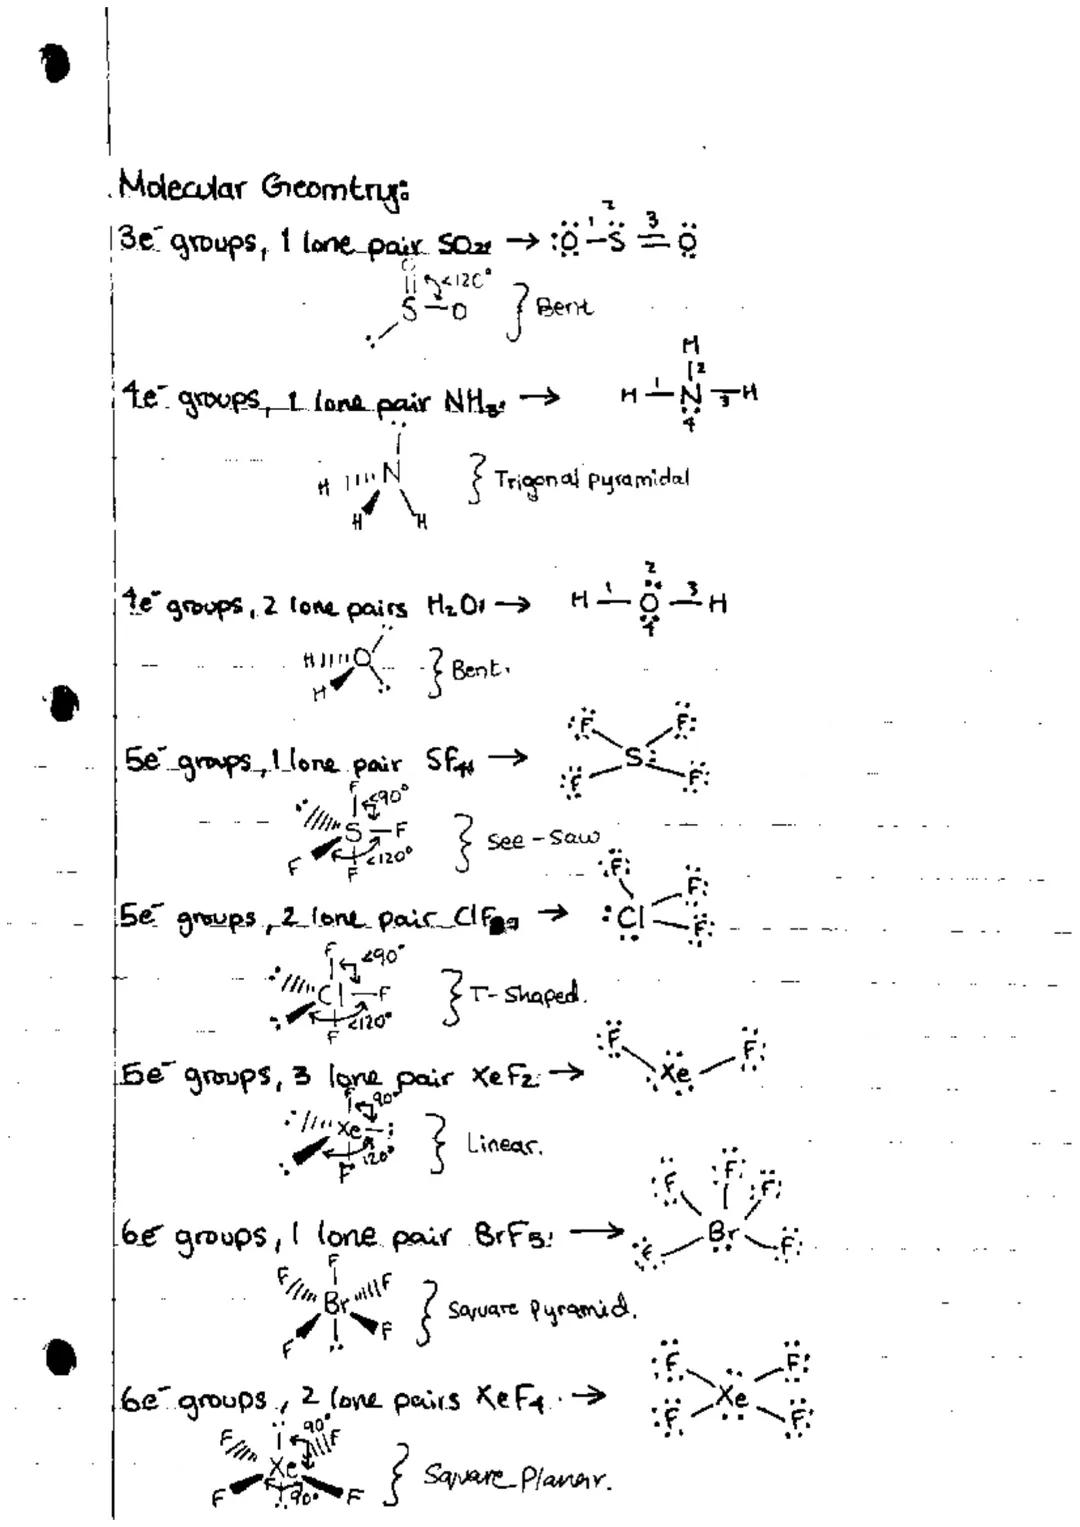 Molecular Geomtry:
3e⁻ groups, 1 lone pair SO₂: → :Ö –S = Ö
1 2 3
O
<120°
S–O
} Bent
4e⁻ groups, 1 lone pair NH₃: → H – N – H
H
1 2 3 4
H N
H H
} Trigonal pyramidal
4e⁻ groups, 2 lone pairs H₂O: → H – O – H
1 2 3 4
H O
H
} Bent.
5e⁻ groups, 1 lone pair SF₄: →
F F
S
F F
F <90°
S – F
F <120°
F
} See-Saw
5e⁻ groups, 2 lone pair ClF₃: →
F F
Cl F
F <90°
Cl – F
<120°
F
} T-Shaped.
5e⁻ groups, 3 lone pair XeF₂: →
F F
Xe
F 90°
Xe – :
120°
F
} Linear.
6e⁻ groups, 1 lone pair BrF₅: →
F F F
Br
F F
F
F F
Br
F F
} Square Pyramid.
6e⁻ groups, 2 lone pairs XeF₄. →
F F
Xe
F F
90°
F F
Xe
F 90° F
} Square Planar.